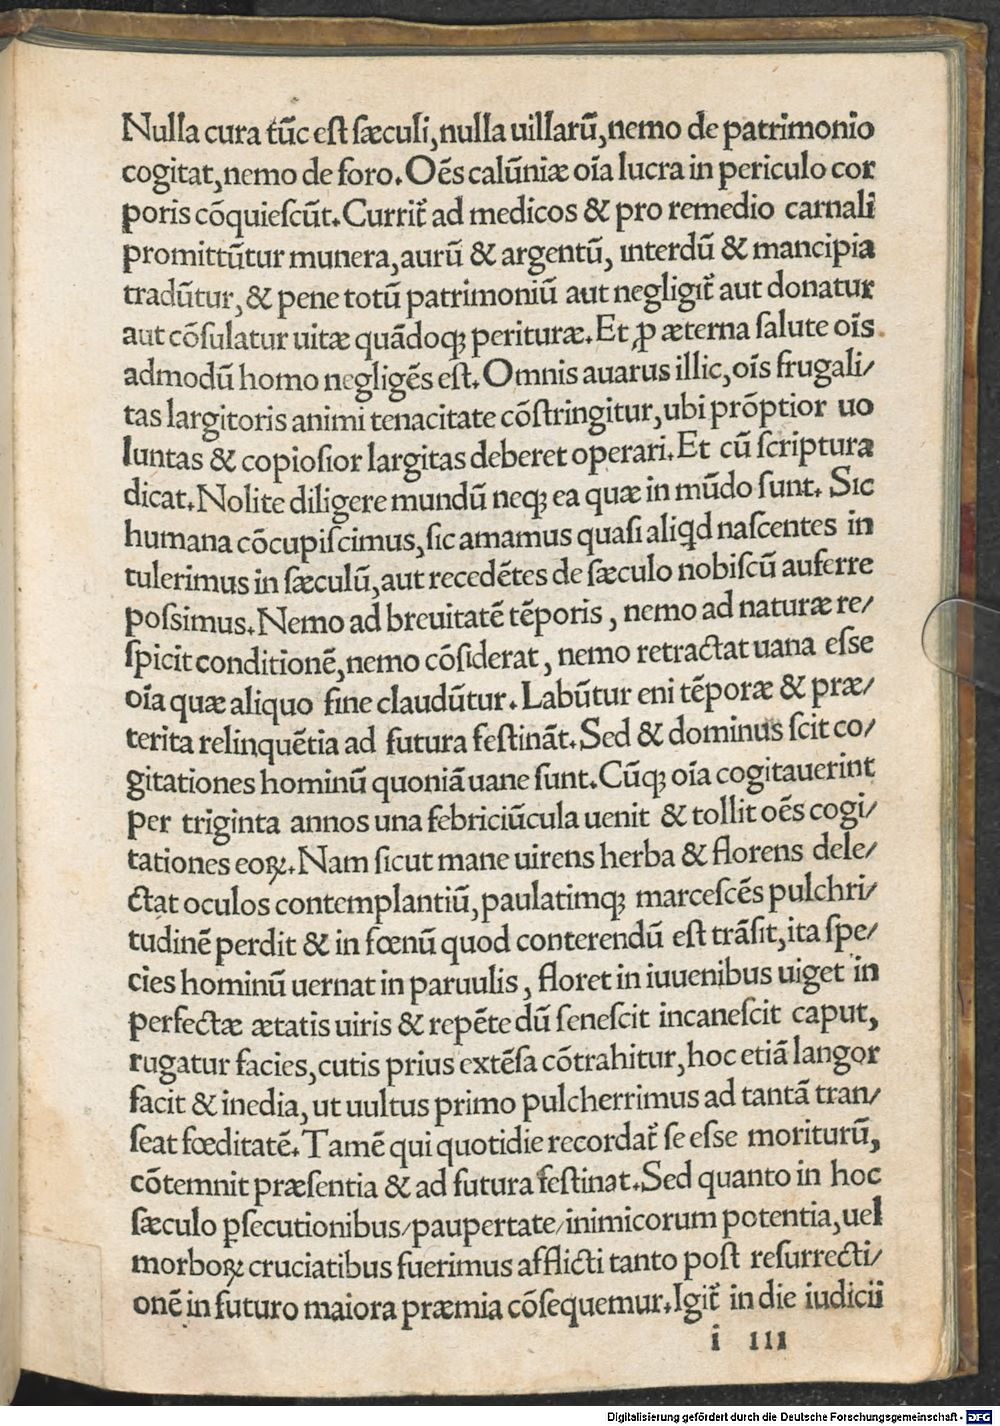 Nulla cura tūc eſt ſæculi, nulla uillarū, nemo de patrimonio
cogitat, nemo de foro. Oēs calūniæ oīa lucra in periculo cor
poris cōquieſcūt. Currit᷑ ad medicos & pro remedio carnali
promittūtur munera, aurū & argentū, interdū & mancipia
tradūtur, & pene totū patrimoniū aut negligit᷑ aut donatur
aut cōſulatur uitæ quādoqꝫ perituræ. Et ꝓ æterna ſalute oīs
admodū homo negligēs eſt. Omnis auarus illic, oīs frugali/
tas largitoris animi tenacitate cōſtringitur, ubi prōptior uo
luntas & copioſior largitas deberet operari. Et cū ſcriptura
dicat. Nolite diligere mundū neqꝫ ea quæ in mūdo ſunt. Sic
humana cōcupiſcimus, ſic amamus quaſi aliqd naſcentes in
tulerimus in ſæculū, aut recedētes de ſæculo nobiſcū auferre
poſsimus. Nemo ad breuitatē tēporis, nemo ad naturæ re/
ſpicit conditionē, nemo cōſiderat, nemo retractat uana eſse
oīa quæ aliquo fine claudūtur. Labūtur eni tēporæ & præ/
terita relinquētia ad futura feſtināt. Sed & dominus ſcit co/
gitationes hominū quoniā uane ſunt. Cūqꝫ oīa cogitauerint
per triginta annos una febriciūcula uenit & tollit oēs cogi/
tationes eoꝝ. Nam ſicut mane uirens herba & florens dele/
ctat oculos contemplantiū, paulatimqꝫ marceſcēs pulchri/
tudinē perdit & in fœnū quod conterendū eſt trāſit, ita ſpe/
cies hominū uernat in paruulis, floret in iuuenibus uiget in
perfectæ ætatis uiris & repēte dū ſeneſcit incaneſcit caput,
rugatur facies, cutis prius extēſa cōtrahitur, hoc etiā langor
facit & inedia, ut uultus primo pulcherrimus ad tantā tran/
ſeat fœditatē. Tamē qui quotidie recordat᷑ ſe eſse moriturū,
cōtemnit præſentia & ad futura feſtinat. Sed quanto in hoc
ſæculo ꝑſecutionibus/paupertate/inimicorum potentia, uel
morboꝝ cruciatibus fuerimus afflicti tanto poſt reſurrecti/
onē in futuro maiora præmia cōſequemur. Igit᷑ in die iudicii
i iii
Digitalisierung gefördert durch die Deutsche Forschungsgemeinschaft - DFG